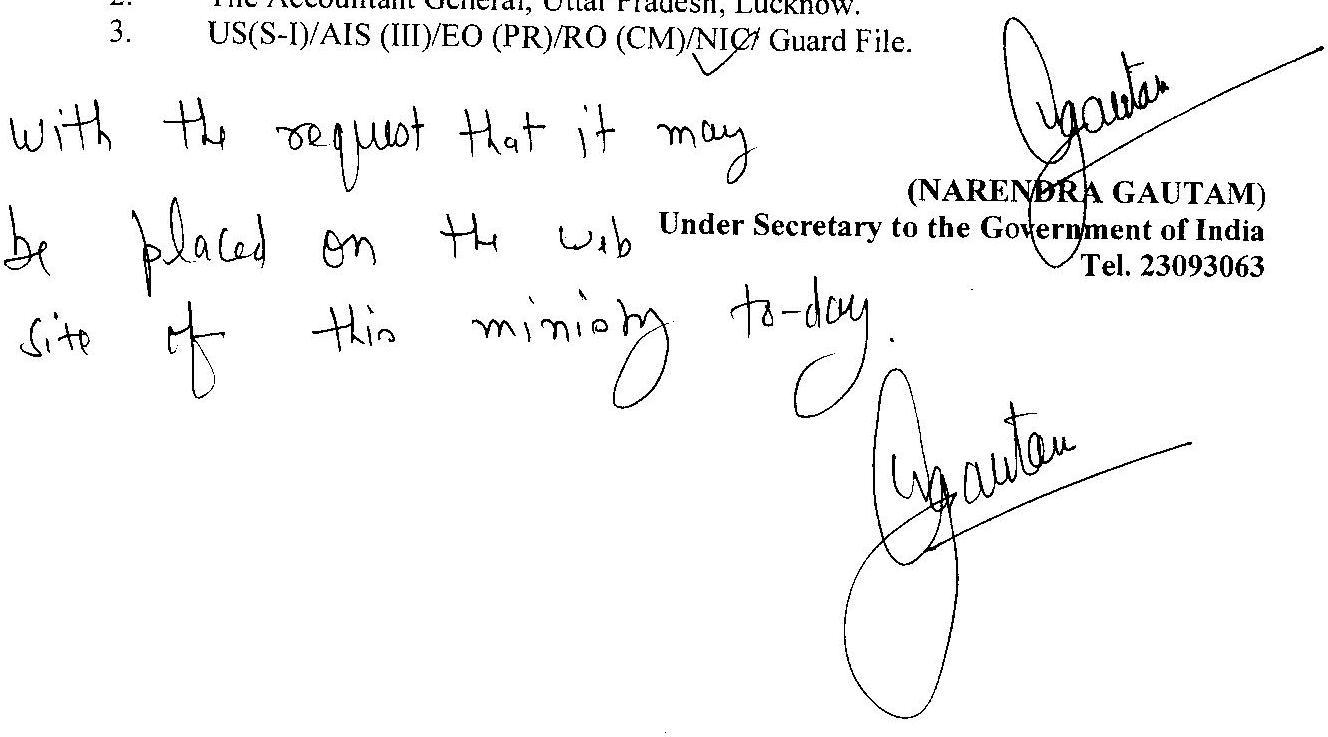 2. The Accountant General, Uttar Pradesh, Lucknow.
3. US(S-I)/AIS (III)/EO (PR)/RO (CM)/NIC/ Guard File.
Gautam
(NARENDRA GAUTAM)
Under Secretary to the Government of India
Tel. 23093063
with the request that it may
be placed on the web
site of this ministry to-day.
Gautam